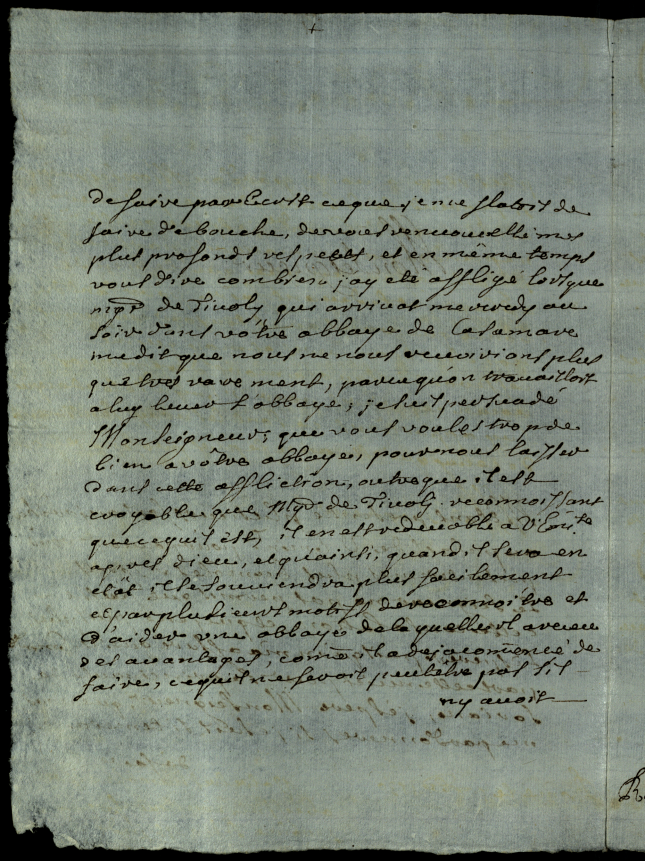 de faire par Ecrit ce que je me flatois de
faire de bouche, de vous renouveller mes
plus profonds respects, et en même temps
vous dire combien j'ay eté affligé lorsque
mgr de Tivoly qui arrivat mercredy au
soir dans vôtre abbaye de Casamare
me dit que nous ne nous reverrions plus
que tres rarement, parce qu'on travailloit
a luy lever l'abbaye; je suis persuadé
Monseigneur, que vous voules trop de
bien a vôtre abbaye, pour nous laisser
dans cette affliction, outre que il est
croyable que Mgr de Tivoly reconnoissant
que ce quil est, il en est redevable a V.
apres dieu, et qu'ainsi, quand il sera en
etat il se souviendra plus facilement
et par plusieurs motifs de reconnoitre et
d'aider une abbaye de laquelle il a receu
des avantages, come il a deja comencé de
faire, ce quil ne feroit peutêtre pas sil
ny avoit